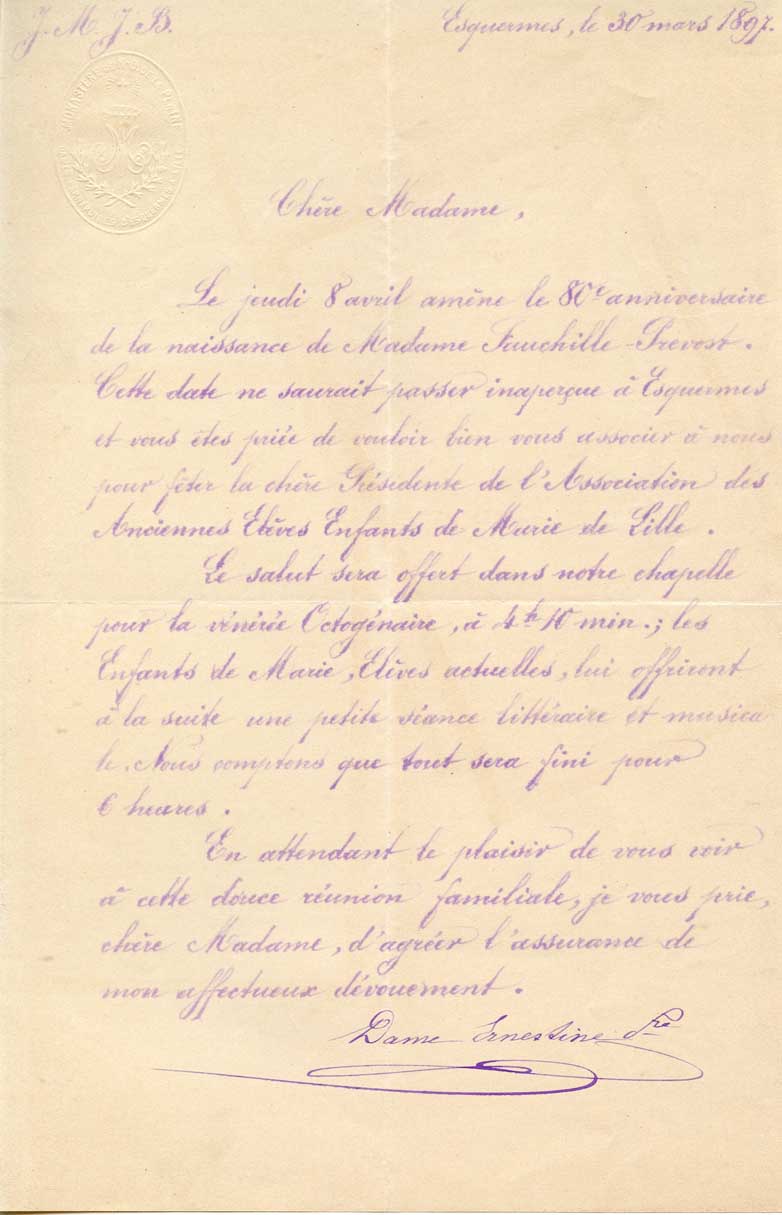 J. M. J. B.
Esquermes, le 30 mars 1897.
Chère Madame,
Le jeudi 8 avril amène le 80e anniversaire
de la naissance de Madame Fauchille-Prevost.
Cette date ne saurait passer inaperçue à Esquermes
et vous êtes priée de vouloir bien vous associer à nous
pour fêter la chère Présidente de l'Association des
Anciennes Elèves Enfants de Marie de Lille.
Le salut sera offert dans notre chapelle
pour la vénérée Octogénaire, à 4h 10 min.; les
Enfants de Marie, Elèves actuelles, lui offriront
à la suite une petite séance littéraire et musica
le. Nous comptons que tout sera fini pour
6 heures.
En attendant le plaisir de vous voir
à cette douce réunion familiale, je vous prie,
chère Madame, d'agréer l'assurance de
mon affectueux dévouement.
Dame Ernestine